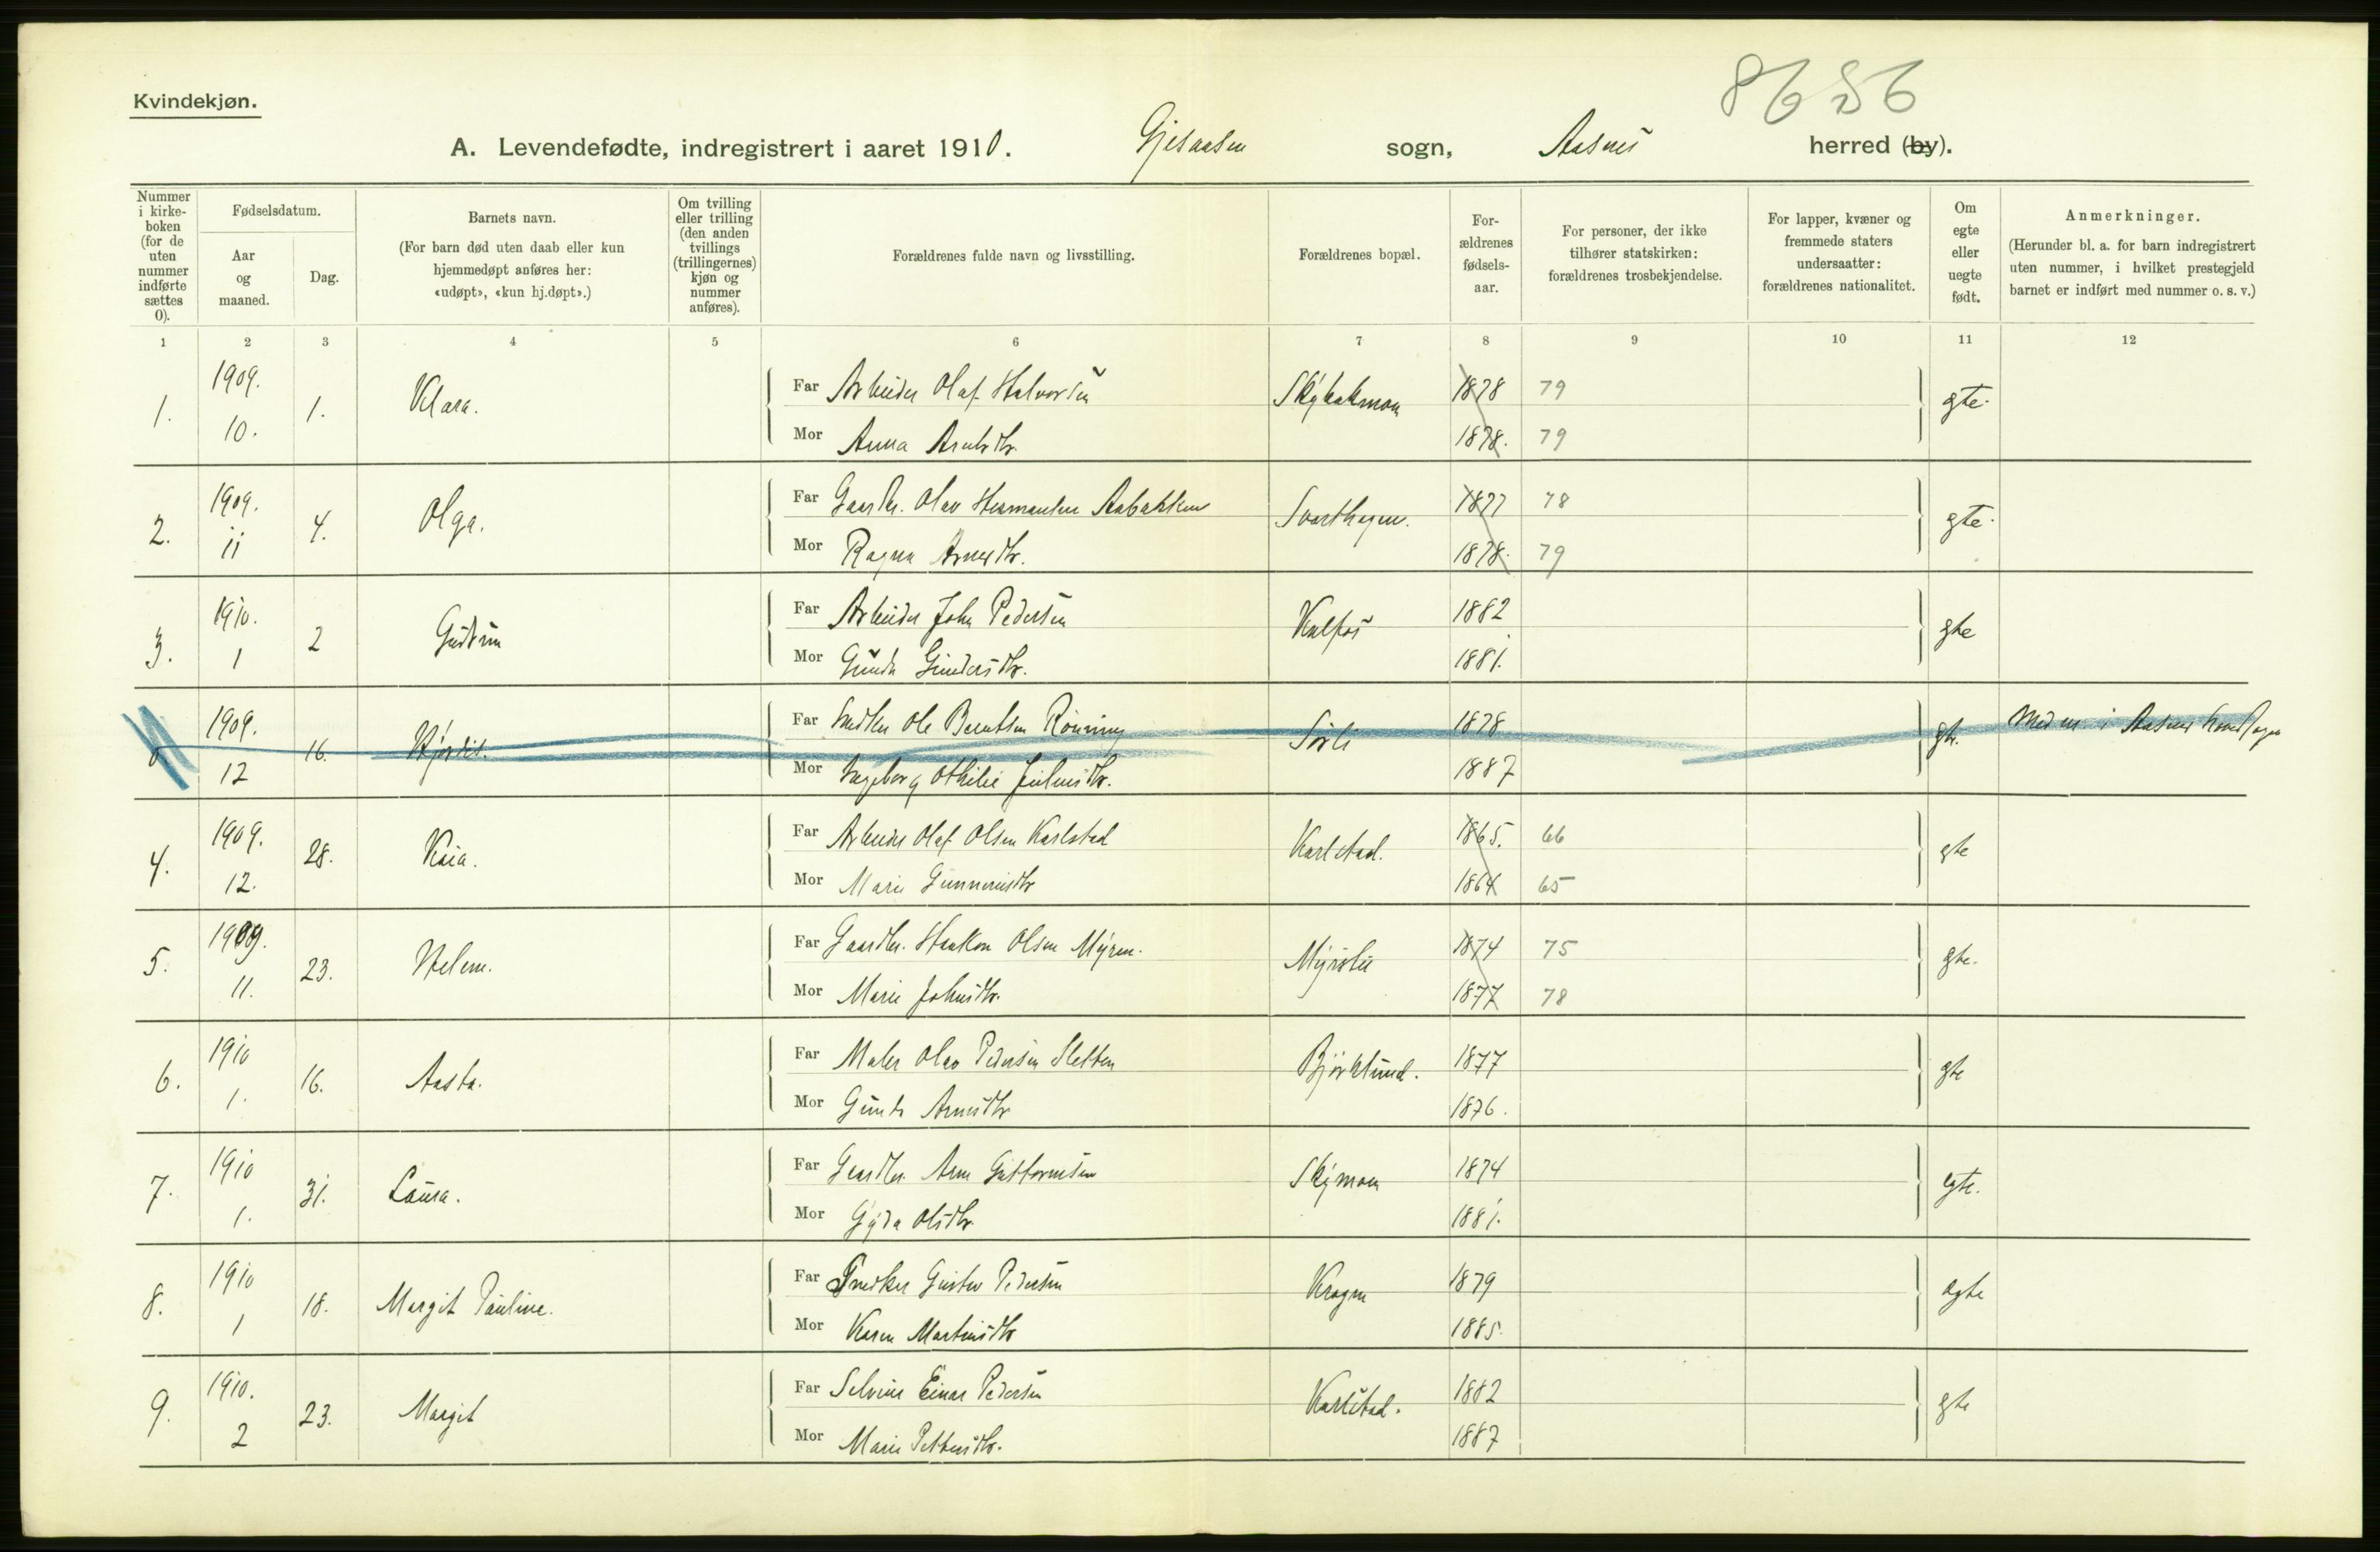 8656
Kvindekjøn.
A. Levendefødte, indregistrert i aaret 1910. Gjesaasen sogn, Aasnes herred (by).
Nummer i kirke-boken (for de uten nummer indførte sættes 0).
Fødselsdatum.
Aar og maaned.
Dag.
Barnets navn.
(For barn død uten daab eller kun hjemmedøpt anføres her: «udøpt», «kun hj.døpt».)
Om tvilling eller trilling (den anden tvillings (trillingernes) kjøn og nummer anføres).
Forældrenes fulde navn og livsstilling.
Forældrenes bopæl.
For-ældrenes fødsels-aar.
For personer, der ikke tilhører statskirken: forældrenes trosbekjendelse.
For lapper, kvæner og fremmede staters undersaatter: forældrenes nationalitet.
Om egte eller uegte født.
Anmerkninger.
(Herunder bl. a. for barn indregistrert uten nummer, i hvilket prestegjeld barnet er indført med nummer o. s. v.)
1 2 3 4 5 6 7 8 9 10 11 12
1. 1909. 10. 1. Klara. Far Arbeider Olaf Halvorsen 1878 79 gte.
Mor Anna 1878. 79
2. 1909. 11 4. Olga. Far Gaardbr. Olav Hermansen Svarthagen. 1877 78 gte.
Mor Ragna Arnesdtr. 1878. 79
3. 1910. 1 2 Gudrun Far Arbeider John Pedersen Kalfos 1882 gte
Mor Gunda Gundersdtr. 1881.
0 1909. 12 16. Hjørdis. Far Ole Berntsen Rønning Sørli 1878 gte. Med nr i Aasnes
Mor Ingeborg Othilie Juliusdtr. 1887
4. 1909. 12. 28. Kaia. Far Arbeider Olaf Olsen Karlstad Karlstad. 1865. 66 gte
Mor Marie Gunnerusdtr 1864 65
5. 1909. 11. 23. Helene. Far Gaardbr. Haakon Olsen Myren. 1874 75 gte.
Mor Marie Johnsdtr. 1877 78
6. 1910 1. 16. Aasta. Far Maler Olav Pedersen Sletten Bjørklund. 1877 gte
Mor Gunda Arnesdtr 1876.
7. 1910 1. 31. Laura. Far Gaardbr. Arne Guttormsen Skymoen 1874 egte.
Mor Gyda Olsdtr. 1881.
8. 1910 1 18. Margit Pauline. Far Snedker Gustav Pedersen Kragen 1879 egte
Mor Karen Martinsdtr 1885.
9. 1910. 2 23. Margit Far Selveier Einar Pedersen Karlstad. 1882 gte
Mor Marie Pettersdtr. 1887